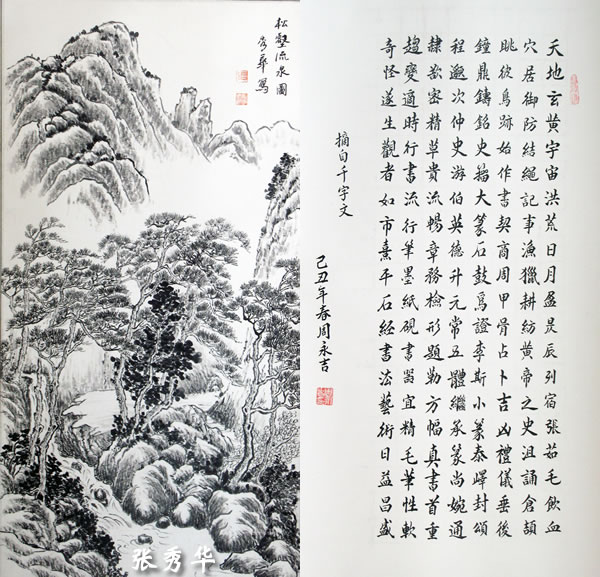 松壑流泉圖
秀華寫
张秀华
天地玄黃宇宙洪荒日月盈昃辰列宿張茹毛飲血
穴居御防結繩記事漁獵耕紡黃帝之史沮誦倉頡
眺彼鳥跡始作書契商周甲骨占卜吉凶禮儀垂後
鐘鼎鑄銘史籀大篆石鼓爲證李斯小篆泰嶧封頌
程邈次仲史游伯英德升元常五體繼承篆尚婉通
隸欲密精草貴流暢章務檢形題勒方幅真書首重
趨變適時行書流行筆墨紙硯書器宜精毛筆性軟
奇怪遂生觀者如市熹平石經書法藝術日益昌盛
摘自千字文
己丑年春周永吉